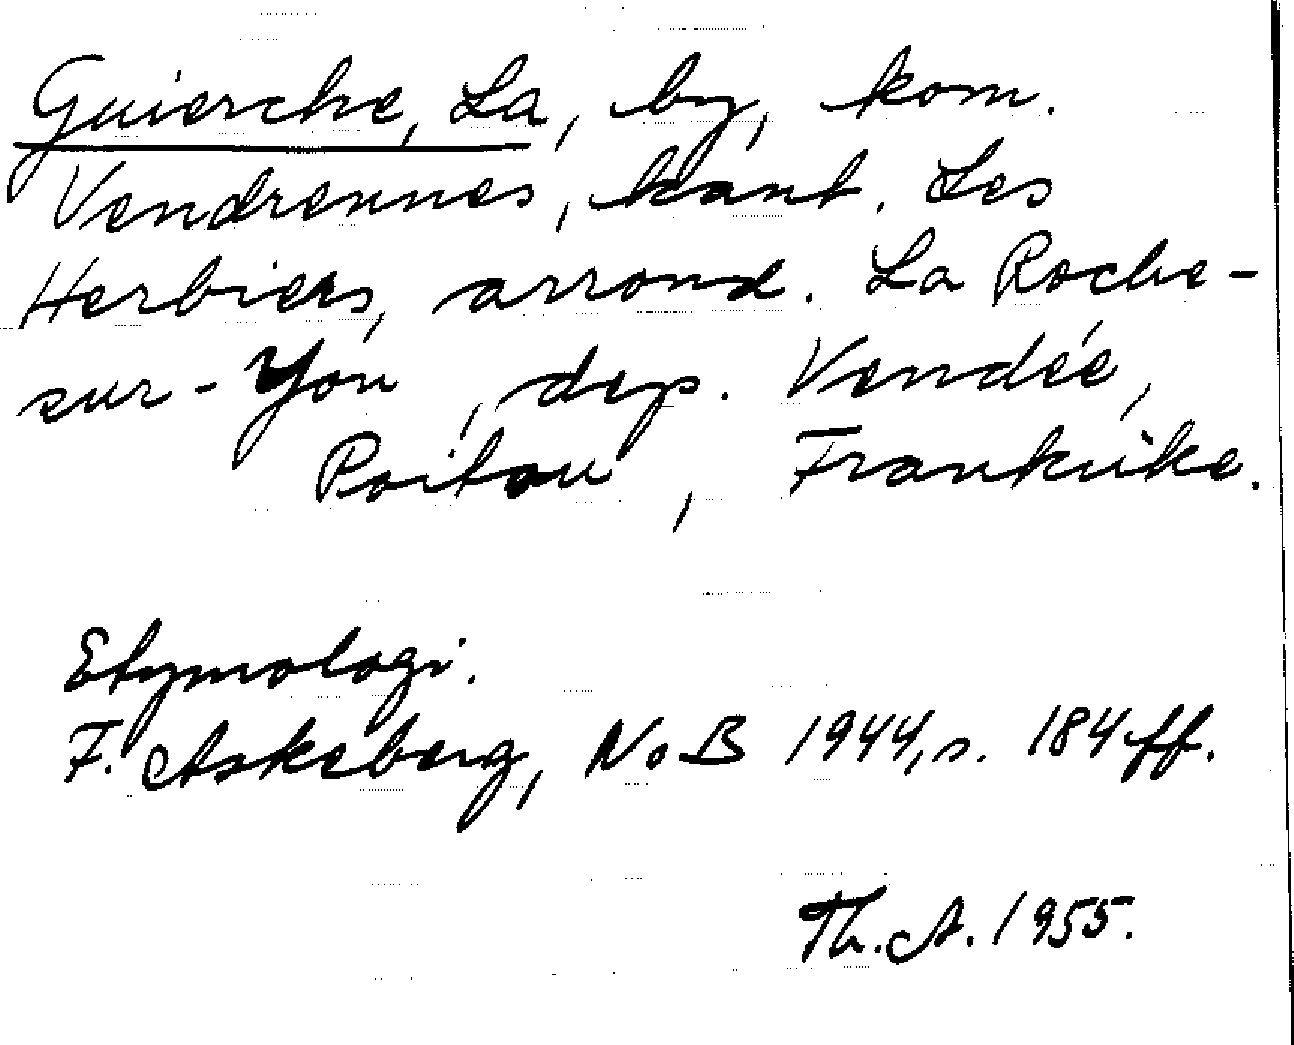 Guierche, La, by, kom.
Vendrennes, kant. Les
Herbiers, arrond. La Roche-
sur-Yon, dep. Vendée,
Poitou, Frankrike.
Etymologi.
F. Askeberg, NoB 1944, s. 184 ff.
Th. A. 1955.